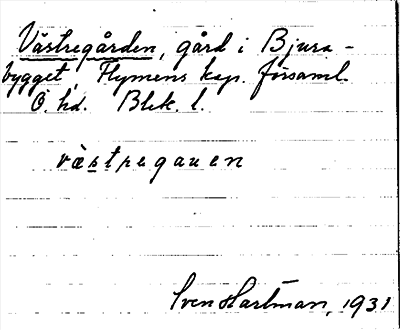 Västregården, gård i Bjura-
bygget, Flymens kap. församl.
Ö. hd. Blek. l.
vä̀stregạuen
Sven Hartman, 1931